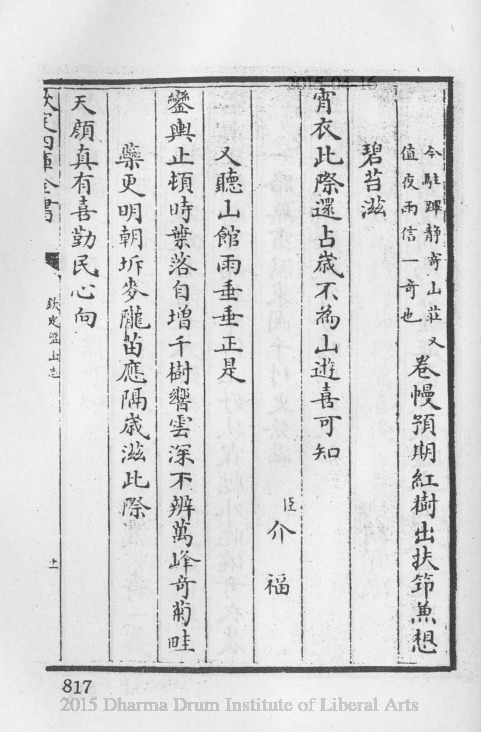 2015-04-16
今駐蹕靜寄山莊又
值夜雨信一奇也
卷幔預期紅樹出扶筇兼想
碧苔滋
宵衣此際還占歲不為山遊喜可知
臣介福
又聽山館雨垂垂正是
鑾輿止頓時葉落自增千樹響雲深不辨萬峰奇菊畦
藥更明朝坼麥隴苗應隔歲滋此際
天顔真有喜勤民心向
欽定四庫全書
欽定盤山志
十一
817
2015 Dharma Drum Institute of Liberal Arts